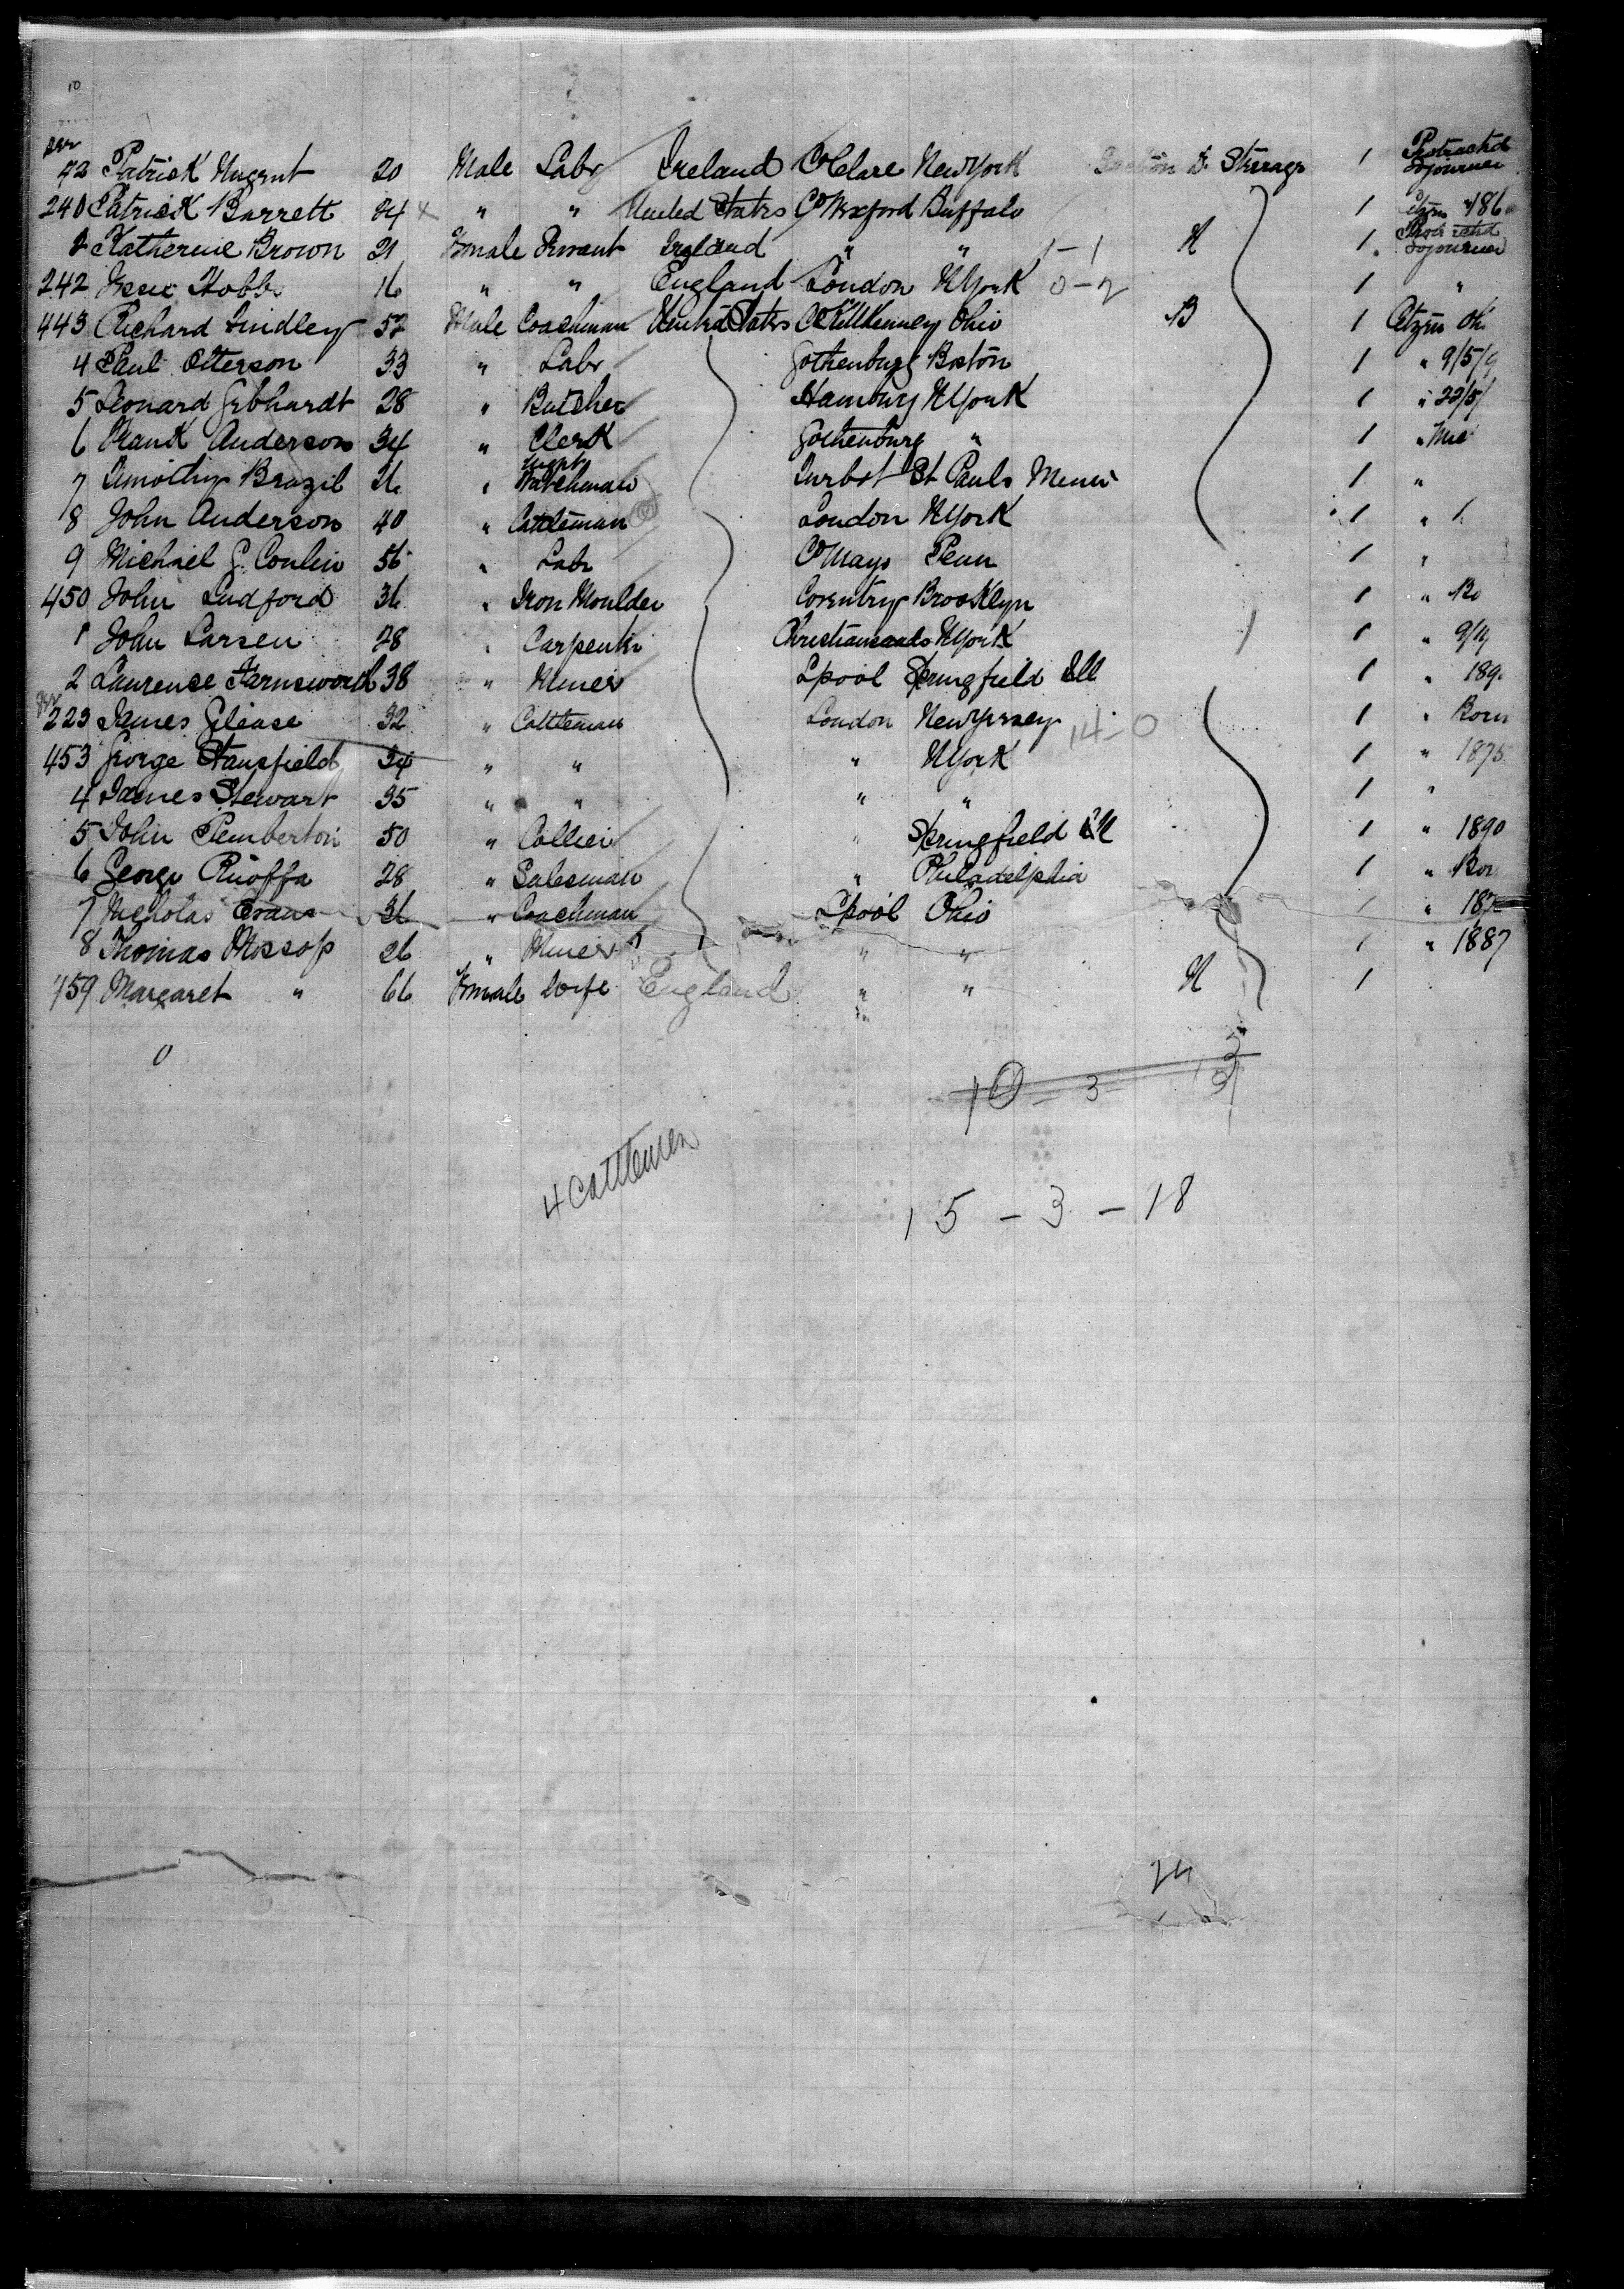 10
42 Patrick Nugent 20 Male Labr Ireland Co Clare New York Section D. Steerage 1 Protracted Sojourner
240 Patrick Barrett 24 x " " United States Co Wexford Buffalo 1 Ctzn 186
Katherine Brown 21 Female Servant Ireland " " 1-1 N 1 Protracted Sojourner
242 Jessie Hobbs 16 " " England London N York 0-2 1 "
443 Richard Lindley 52 Male Coachman United States Co Killkenney Ohio B 1 Ctzn Oh
4 Paul Otterson 33 " Labr Gothenburg Boston 1 " 9/5/9
5 Leonard Gebhardt 28 " Butcher Hamburg N York 1 " 22/5/
6 Frank Anderson 34 " Clerk Gothenburg " 1 "
7 Timothy Brazil 26 " Night Watchman St Pauls 1 "
8 John Anderson 40 " Cattleman London N York 1 " 1
9 Michael G. Conlin 56 " Labr Co Mayo Penn 1 "
450 John Ludford 36 " Iron Moulder Coventry Brooklyn 1 " Bo
1 John Larsen 28 " Carpenter Christiansands N York 1 1 " 9/4
2 Laurence Farnsworth 38 " Miner Lpool Springfield Ill 1 " 189
223 James Glease 32 " Cattleman London New Yersey 14-0 1 " Born
453 George Stansfield 34 " " " N York 1 " 1875
4 James Stewart 35 " " " " 1 "
5 John Pemberton 50 " Collier " Springfield Ill 1 " 1890
6 George Ruoffa 28 " Salesman " Philadelphia 1 " Bor
7 Nicholas Evans 31 " Coachman Lpool Ohio 1 " 187
8 Thomas Mossop 26 " Miner " " 1 " 1887
459 Margaret " 66 Female Wife England " " N 1
0
10 - 3
4 Cattlemen
15 - 3 - 18